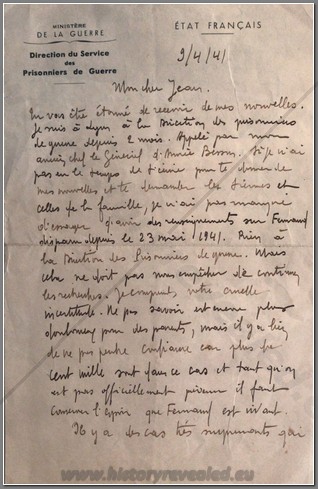 MINISTÈRE
DE LA GUERRE
Direction du Service
des
Prisonniers de Guerre
ÉTAT FRANÇAIS
9/4/41
Mon cher Jean.
Tu vas être étonné de recevoir de mes nouvelles.
Je suis à Lyon à la Direction des prisonniers
de guerre depuis 2 mois. Appelé par mon
ancien chef le Général d'Armée Besson. Si je n'ai
pas eu le temps de t'écrire pour te donner de
mes nouvelles et te demander les tiennes et
celles de la famille, je n'ai pas manqué
d'essayer d'avoir des renseignements sur Fernand
disparu depuis le 23 mai 1941. Rien à
la Direction des Prisonniers de guerre. Mais
cela ne doit pas nous empêcher de continuer
les recherches. Je comprends votre cruelle
incertitude. Ne pas savoir est même plus
douloureux pour des parents, mais il y a lieu
de ne pas perdre confiance car plus de
cent mille sont dans ce cas et tant qu'on
est pas officiellement prévenu il faut
conserver l'espoir que Fernand est vivant.
Il y a des cas très surprenants qui
www.historyrevealed.eu